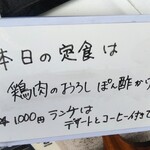 本日の定食は
鶏肉のおろしぽん酢から
* 1000円ランチは
デザートとコーヒー付きで